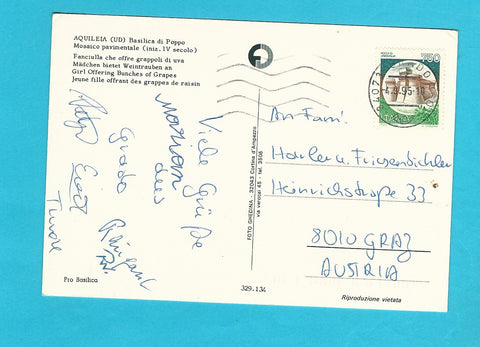 AQUILEIA (UD) Basilica di Poppo
Mosaico pavimentale (iniz. IV secolo)
Fanciulla che offre grappoli di uva
Mädchen bietet Weintrauben an
Girl Offering Bunches of Grapes
Jeune fille offrant des grappes de raisin
Viele Grüße
aus
Grado
FOTO GHEDINA - 32043 Cortina d'Ampezzo
via verocai 45 - tel. 3508
750
An Fam.
Harler u. Friesenbichler
Heinrichstraße 33
8010 GRAZ
AUSTRIA
Pro Basilica
329.134
Riproduzione vietata